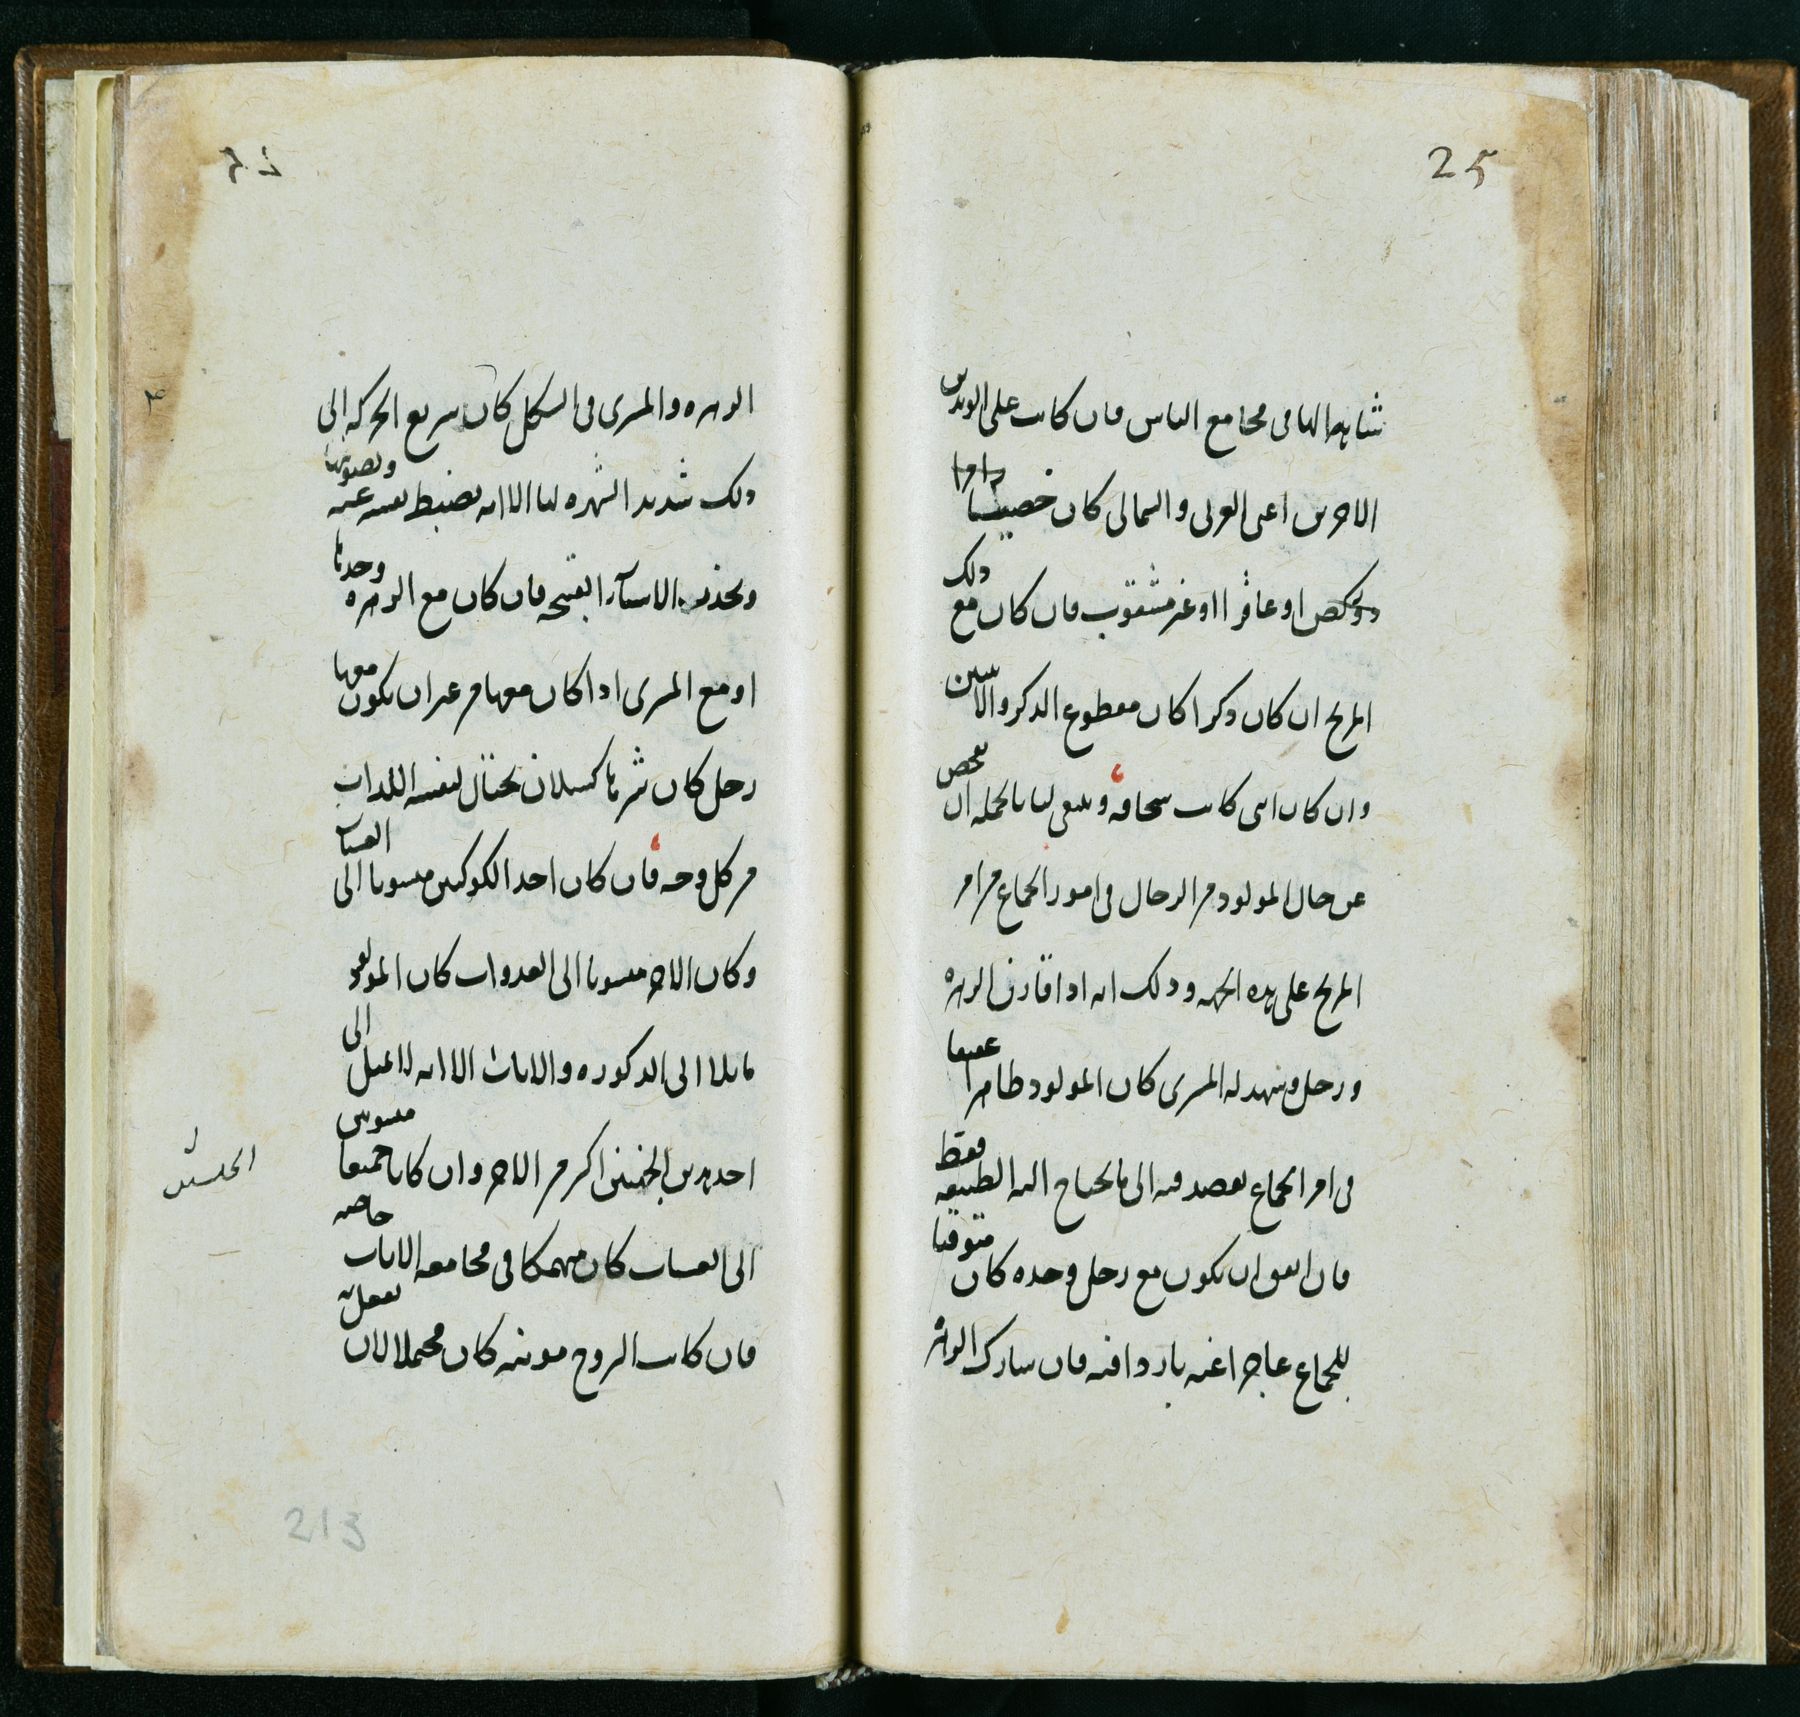 25
شابهها في مجامع الناس فان كانت على الوتدين
الاخرين اعنى الغربى والشمالى كان خصيا
او عاقرا او غير مثقوب فان كان مع ذلك
المريخ ان كان ذكرا كان مقطوع الذكر والانثيين
وان كان انثى كانت سحاقة وينبغى لنا بالجملة ان نفحص
عن حال المولود من الرجال فى امور الجماع من امر
المريخ على هذه الجهة وذلك انه اذا فارق الزهرة
وزحل وشهد له المشترى كان المولود طاهرا عفيفا
فى امر الجماع يقصد منه الى ما يحتاج اليه الطبيعة فقط
فان اتفق ان يكون مع زحل وحده كان متوقيا
للجماع عاجزا عنه باردا فيه فان شارك الزهرة
الزهرة والمشترى فى الشكل كان سريع الحركة الى
ذلك شديد الشهوة لها الا انه يضبط نفسه عنه ويصونها
ويحذر الاشياء القبيحة فان كان مع الزهرة وحدها
او مع المشترى اذا كان معها من غير ان يكون معها
زحل كان شرها كسلان يحتال لنفسه اللذات
من كل وجه فان كان احد الكوكبين منسوبا الى العشيات
وكان الاخر منسوبا الى الغدوات كان المولود
مايلا الى الذكورة والاناث الا انه لا يميل الى
احد هذين الجنسين اكثر من الاخر وان كانا جميعا منسوبين
الى العشيات كان منهمكا فى مجامعة الاناث خاصة
فان كانت البروج مؤنثة كان محتملا لان يفعل به
الجنسين
213